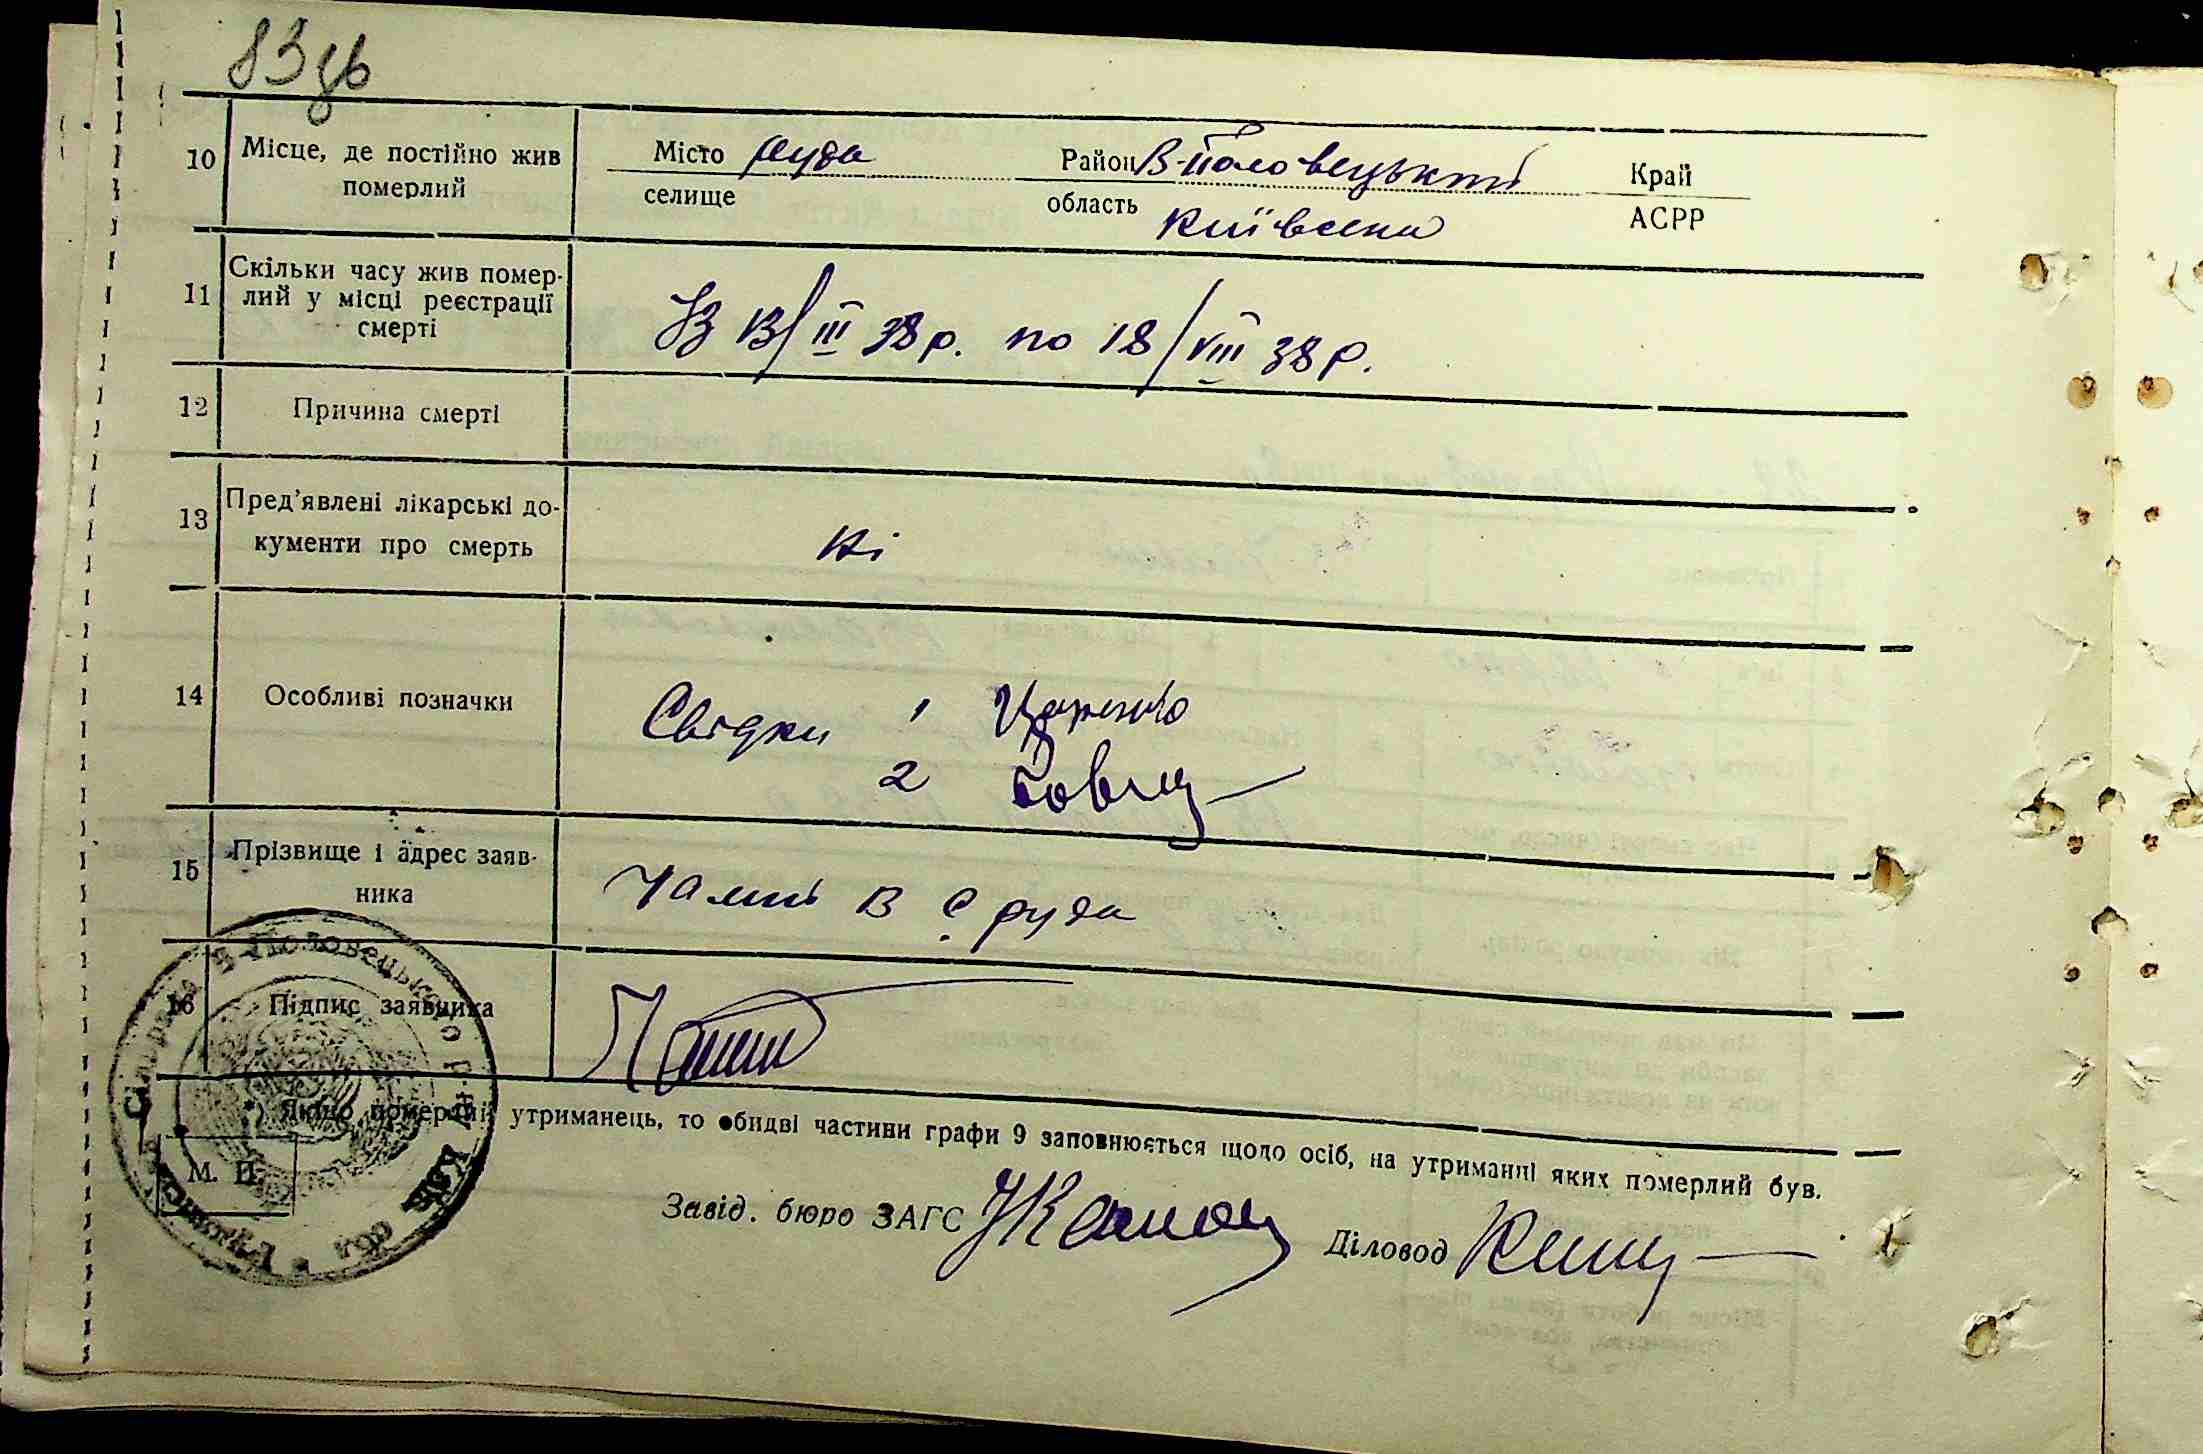 83 зв
10 Місце, де постійно жив померлий
Місто Руда Район В-Половецький Край
селище область Київська АСРР
11 Скільки часу жив помер-
лий у місці реєстрації
смерті
З 13/III 38 р. по 18/VIII 38 р.
12 Причина смерті
13 Пред'явлені лікарські до-
кументи про смерть
Ні
14 Особливі позначки
Свідки 1
2
15 Прізвище і адрес заяв-
ника
в с Руда
16 Підпис заявника
*) Якщо померлий утриманець, то обидві частини графи 9 заповнюється щодо осіб, на утриманні яких померлий був.
М. П.
Завід. бюро ЗАГС Діловод